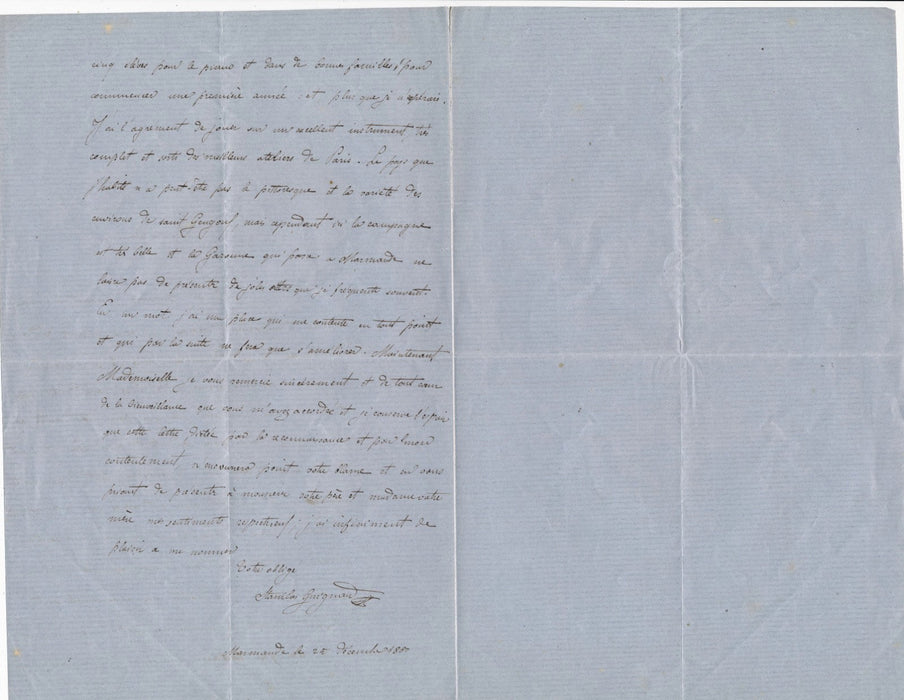 cinq élèves pour le piano et dans de bonnes familles, pour
commencer une première année c'est plus que je n'espérais.
J'ai l'agrément de jouer sur un excellent instrument, très
complet et sorti des meilleurs ateliers de Paris. Le pays que
j'habite n'a peut-être pas le pittoresque et la variété des
environs de saint Gengoux, mais cependant ici la campagne
est très belle et la Garonne qui passe à Marmande ne
laisse pas de présenter de jolis sites que j'y fréquente souvent.
En un mot j'ai une place qui me contente en tout point
et qui par la suite ne fera que s'améliorer. Maintenant
Mademoiselle je vous remercie sincèrement et de tout cœur
de la bienveillance que vous m'avez accordée et je conserve l'espoir
que cette lettre dictée par la reconnaissance et par mon
contentement, n'encourera point votre blame et en vous
priant de présenter à monsieur votre père et madame votre
mère mes sentiments respectueux; j'ai infiniment de
plaisir à me nommer
Votre obligé
Stanislas Guignand
Marmande le décembre